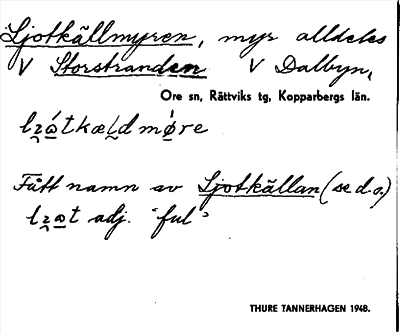 Ljotkällmyren, myr alldeles
V Storstranden V Dalbyn,
Ore sn, Rättviks tg, Kopparbergs län.
Fått namn av Ljotkällan (se d.o.)
adj. "ful"
THURE TANNERHAGEN 1948.